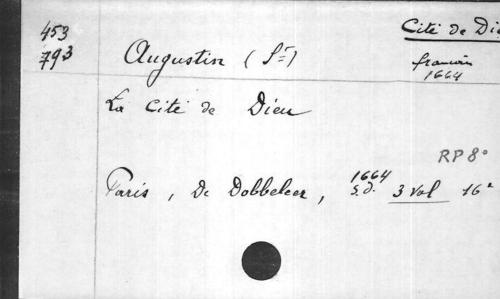 453
793
Cité de Die
français
1664
Augustin (St)
La Cité de Dieu
RP 8°
1664
Paris, De Dobbeleer, s.d. 3 vol 16°